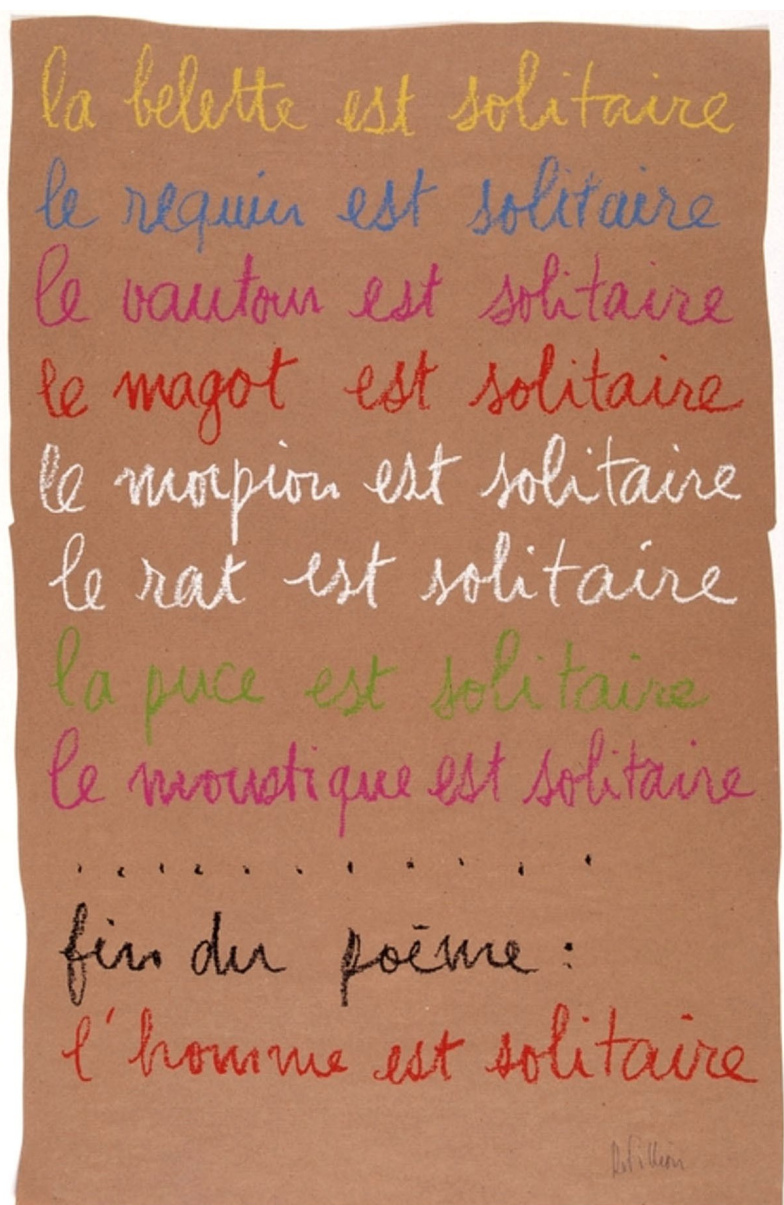 la belette est solitaire
le requin est solitaire
le vautour est solitaire
le magot est solitaire
le morpion est solitaire
le rat est solitaire
la puce est solitaire
le moustique est solitaire
...........
fin du poème :
l'homme est solitaire
R. Filliou